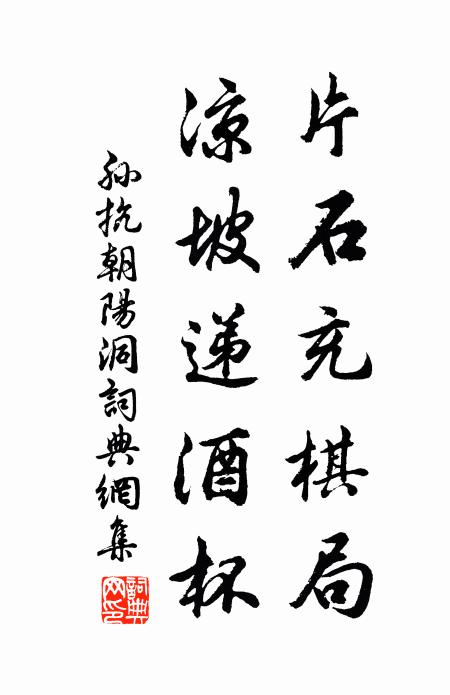 片石充棋局
凉坡递酒杯
孙抗朝陽洞詞典網集
詞典網印